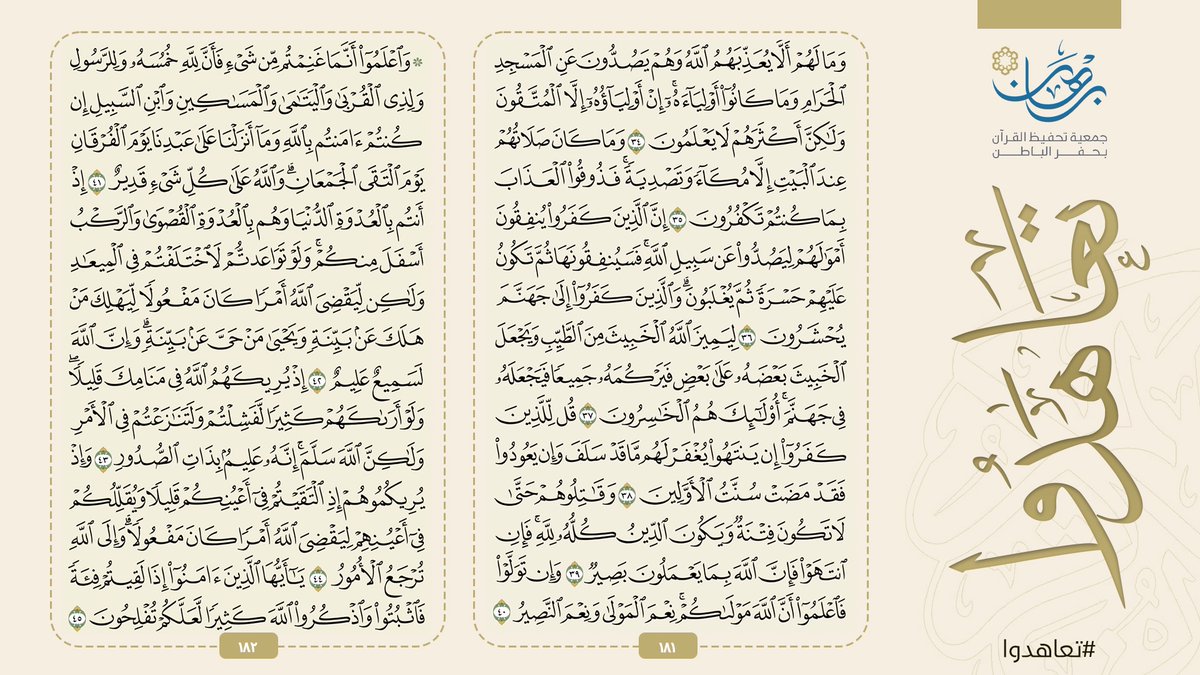 برهان
جمعية تحفيظ القرآن
بحفر الباطن
تعاهدوا
#تعاهدوا
وَمَا لَهُمْ أَلَّا يُعَذِّبَهُمُ ٱللَّهُ وَهُمْ يَصُدُّونَ عَنِ ٱلْمَسْجِدِ
ٱلْحَرَامِ وَمَا كَانُوٓا۟ أَوْلِيَآءَهُۥٓ ۚ إِنْ أَوْلِيَآؤُهُۥٓ إِلَّا ٱلْمُتَّقُونَ
وَلَٰكِنَّ أَكْثَرَهُمْ لَا يَعْلَمُونَ ٣٤ وَمَا كَانَ صَلَاتُهُمْ
عِندَ ٱلْبَيْتِ إِلَّا مُكَآءً وَتَصْدِيَةً ۚ فَذُوقُوا۟ ٱلْعَذَابَ
بِمَا كُنتُمْ تَكْفُرُونَ ٣٥ إِنَّ ٱلَّذِينَ كَفَرُوا۟ يُنفِقُونَ
أَمْوَٰلَهُمْ لِيَصُدُّوا۟ عَن سَبِيلِ ٱللَّهِ ۚ فَسَيُنفِقُونَهَا ثُمَّ تَكُونُ
عَلَيْهِمْ حَسْرَةً ثُمَّ يُغْلَبُونَ ۗ وَٱلَّذِينَ كَفَرُوٓا۟ إِلَىٰ جَهَنَّمَ
يُحْشَرُونَ ٣٦ لِيَمِيزَ ٱللَّهُ ٱلْخَبِيثَ مِنَ ٱلطَّيِّبِ وَيَجْعَلَ
ٱلْخَبِيثَ بَعْضَهُۥ عَلَىٰ بَعْضٍ فَيَرْكُمَهُۥ جَمِيعًا فَيَجْعَلَهُۥ
فِى جَهَنَّمَ ۚ أُو۟لَٰٓئِكَ هُمُ ٱلْخَٰسِرُونَ ٣٧ قُل لِّلَّذِينَ
كَفَرُوٓا۟ إِن يَنتَهُوا۟ يُغْفَرْ لَهُم مَّا قَدْ سَلَفَ وَإِن يَعُودُوا۟
فَقَدْ مَضَتْ سُنَّتُ ٱلْأَوَّلِينَ ٣٨ وَقَٰتِلُوهُمْ حَتَّىٰ
لَا تَكُونَ فِتْنَةٌ وَيَكُونَ ٱلدِّينُ كُلُّهُۥ لِلَّهِ ۚ فَإِنِ
ٱنتَهَوْا۟ فَإِنَّ ٱللَّهَ بِمَا يَعْمَلُونَ بَصِيرٌ ٣٩ وَإِن تَوَلَّوْا۟
فَٱعْلَمُوٓا۟ أَنَّ ٱللَّهَ مَوْلَىٰكُمْ ۚ نِعْمَ ٱلْمَوْلَىٰ وَنِعْمَ ٱلنَّصِيرُ ٤٠
١٨١
۞ وَٱعْلَمُوٓا۟ أَنَّمَا غَنِمْتُم مِّن شَىْءٍ فَأَنَّ لِلَّهِ خُمُسَهُۥ وَلِلرَّسُولِ
وَلِذِى ٱلْقُرْبَىٰ وَٱلْيَتَٰمَىٰ وَٱلْمَسَٰكِينِ وَٱبْنِ ٱلسَّبِيلِ إِن
كُنتُمْ ءَامَنتُم بِٱللَّهِ وَمَآ أَنزَلْنَا عَلَىٰ عَبْدِنَا يَوْمَ ٱلْفُرْقَانِ
يَوْمَ ٱلْتَقَى ٱلْجَمْعَانِ ۗ وَٱللَّهُ عَلَىٰ كُلِّ شَىْءٍ قَدِيرٌ ٤١ إِذْ
أَنتُم بِٱلْعُدْوَةِ ٱلدُّنْيَا وَهُم بِٱلْعُدْوَةِ ٱلْقُصْوَىٰ وَٱلرَّكْبُ
أَسْفَلَ مِنكُمْ ۚ وَلَوْ تَوَاعَدتُّمْ لَٱخْتَلَفْتُمْ فِى ٱلْمِيعَٰدِ
وَلَٰكِن لِّيَقْضِىَ ٱللَّهُ أَمْرًا كَانَ مَفْعُولًا لِّيَهْلِكَ مَنْ
هَلَكَ عَنۢ بَيِّنَةٍ وَيَحْيَىٰ مَنْ حَىَّ عَنۢ بَيِّنَةٍ ۗ وَإِنَّ ٱللَّهَ
لَسَمِيعٌ عَلِيمٌ ٤٢ إِذْ يُرِيكَهُمُ ٱللَّهُ فِى مَنَامِكَ قَلِيلًا ۖ
وَلَوْ أَرَىٰكَهُمْ كَثِيرًا لَّفَشِلْتُمْ وَلَتَنَٰزَعْتُمْ فِى ٱلْأَمْرِ
وَلَٰكِنَّ ٱللَّهَ سَلَّمَ ۗ إِنَّهُۥ عَلِيمٌۢ بِذَاتِ ٱلصُّدُورِ ٤٣ وَإِذْ
يُرِيكُمُوهُمْ إِذِ ٱلْتَقَيْتُمْ فِىٓ أَعْيُنِكُمْ قَلِيلًا وَيُقَلِّلُكُمْ
فِىٓ أَعْيُنِهِمْ لِيَقْضِىَ ٱللَّهُ أَمْرًا كَانَ مَفْعُولًا ۗ وَإِلَى ٱللَّهِ
تُرْجَعُ ٱلْأُمُورُ ٤٤ يَٰٓأَيُّهَا ٱلَّذِينَ ءَامَنُوٓا۟ إِذَا لَقِيتُمْ فِئَةً
فَٱثْبُتُوا۟ وَٱذْكُرُوا۟ ٱللَّهَ كَثِيرًا لَّعَلَّكُمْ تُفْلِحُونَ ٤٥
١٨٢